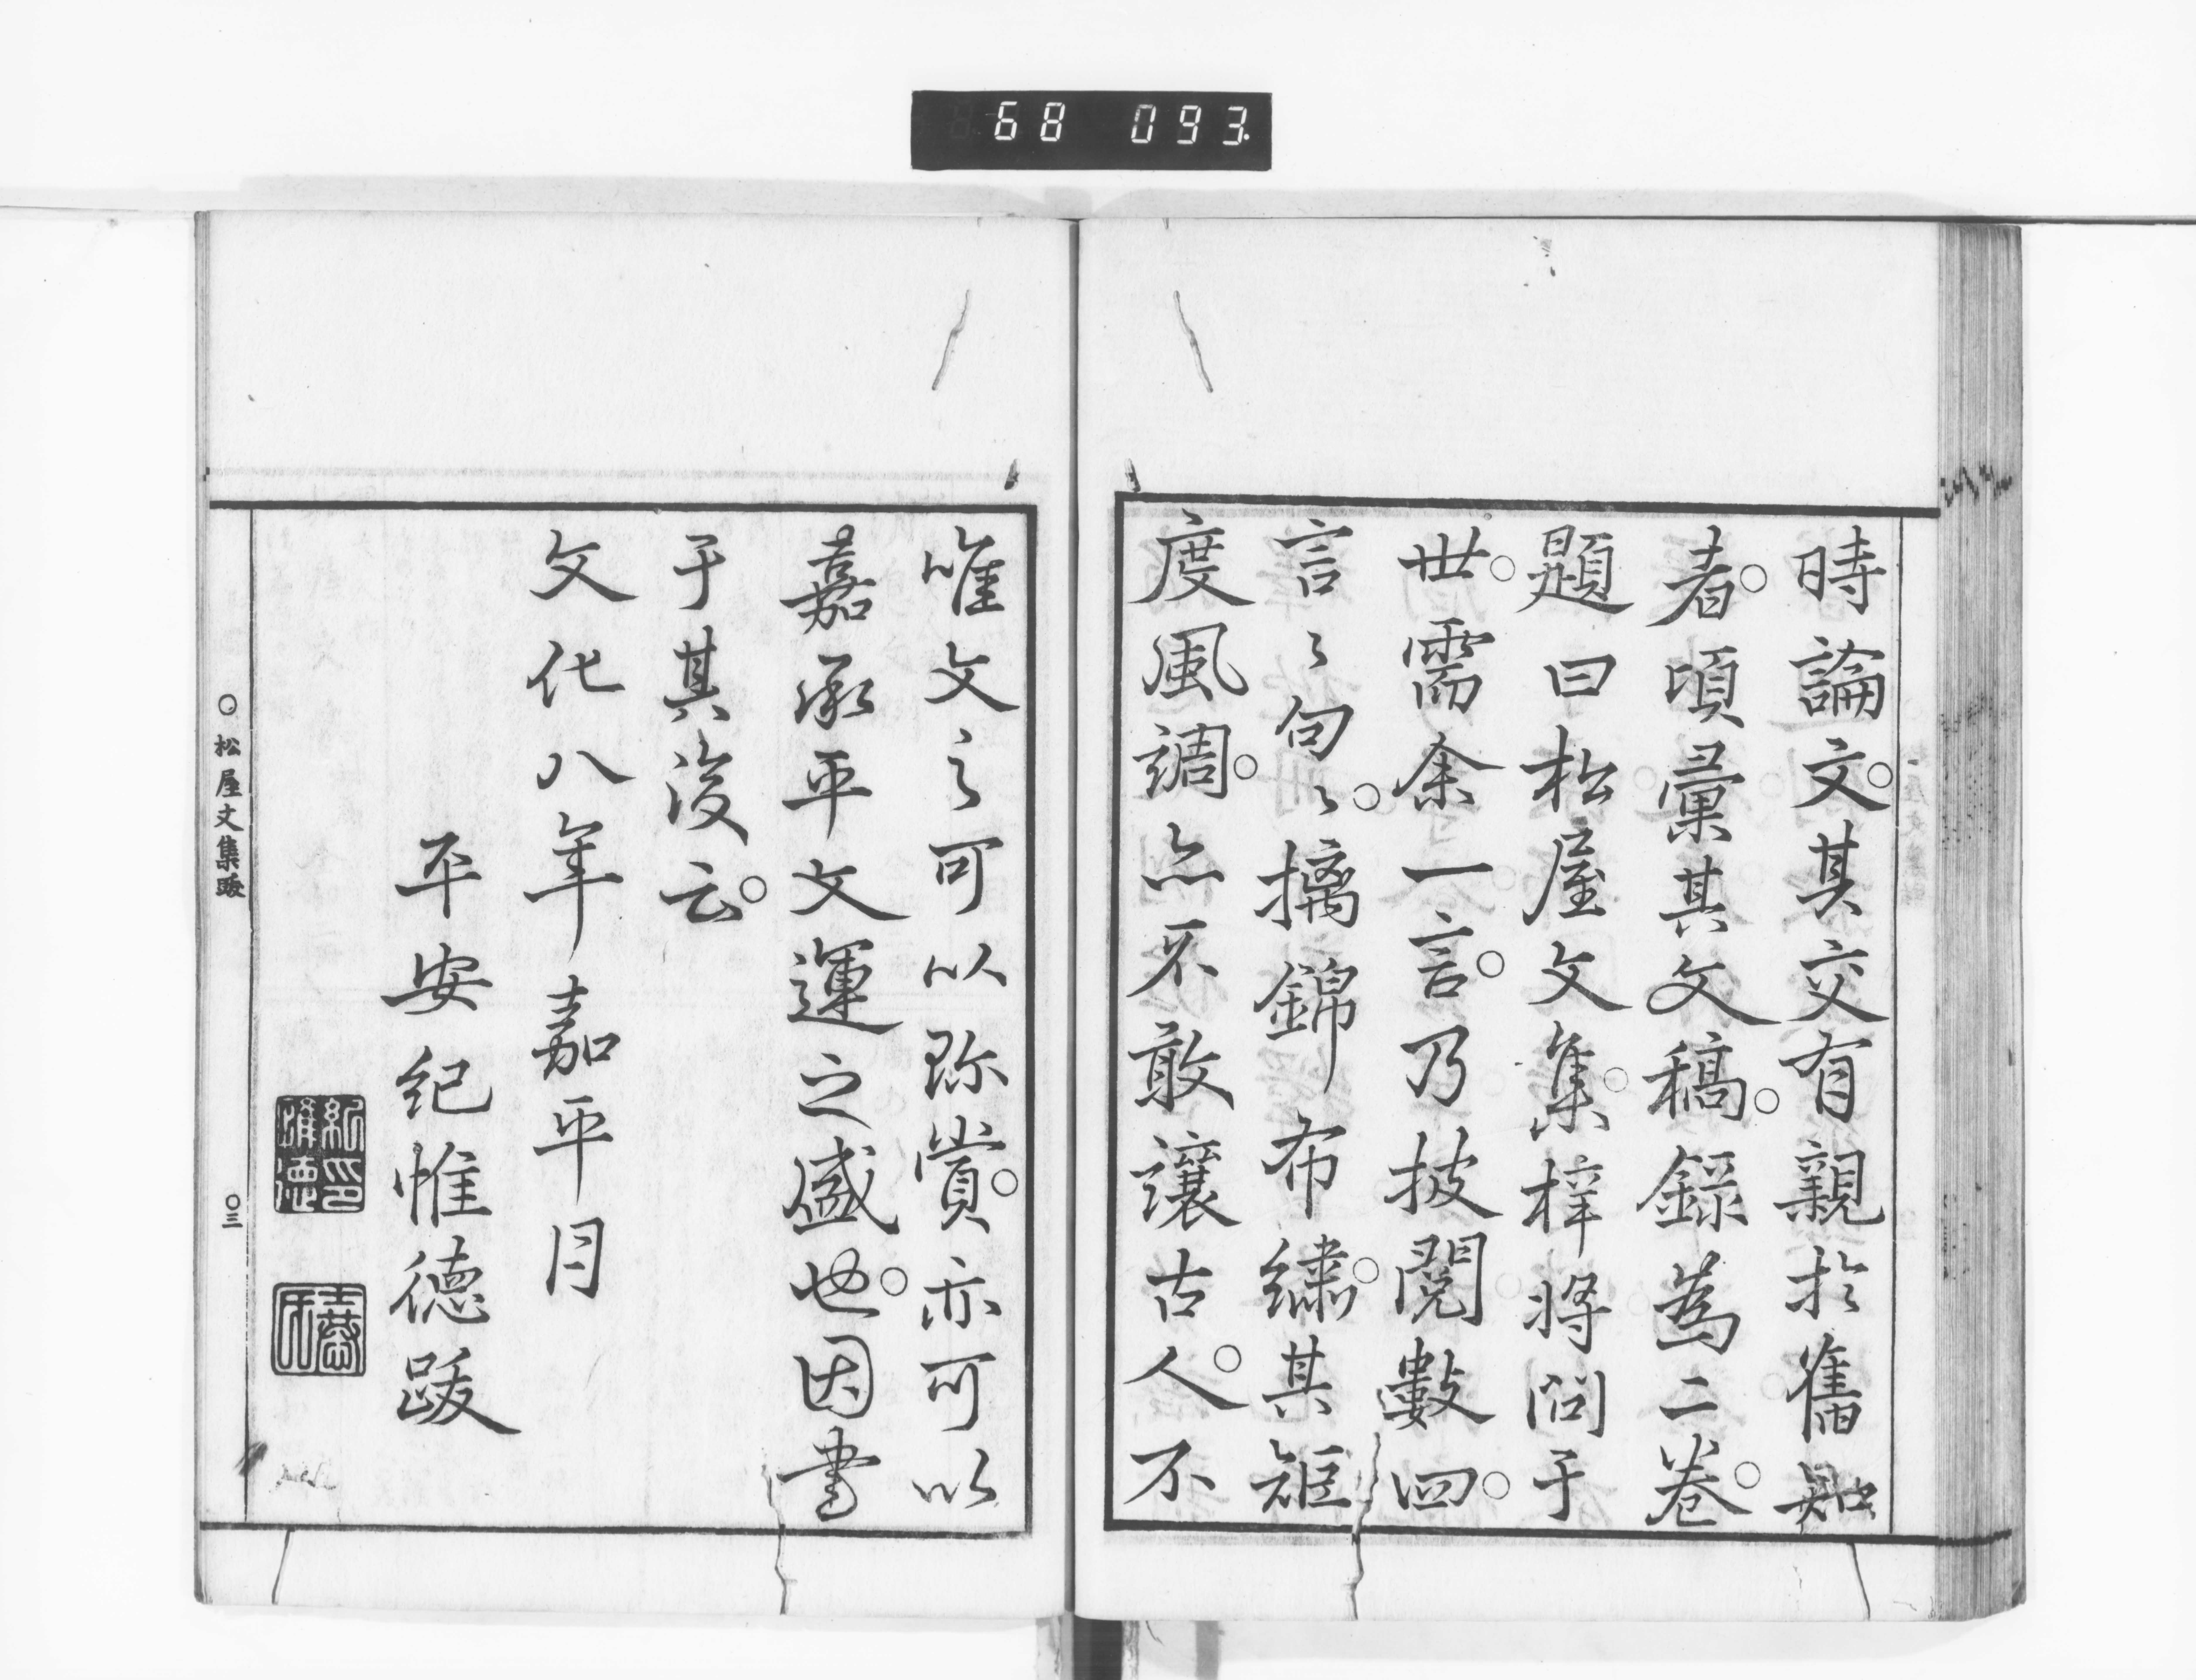 68 093.
時論文○其交有親於舊知
者○頃彙其文稿○錄為二卷○
題曰松屋文集○梓将問于
世○需余一言○乃披閱數四○
言〻句〻○摛錦布繡○其矩
度風調○亦不敢讓古人○不
唯文之可以珎賞○亦可以
嘉承平文運之盛也○因書
于其後云○
文化八年嘉平月
平安紀惟德跋
紀印惟德
○松屋文集跋
○三